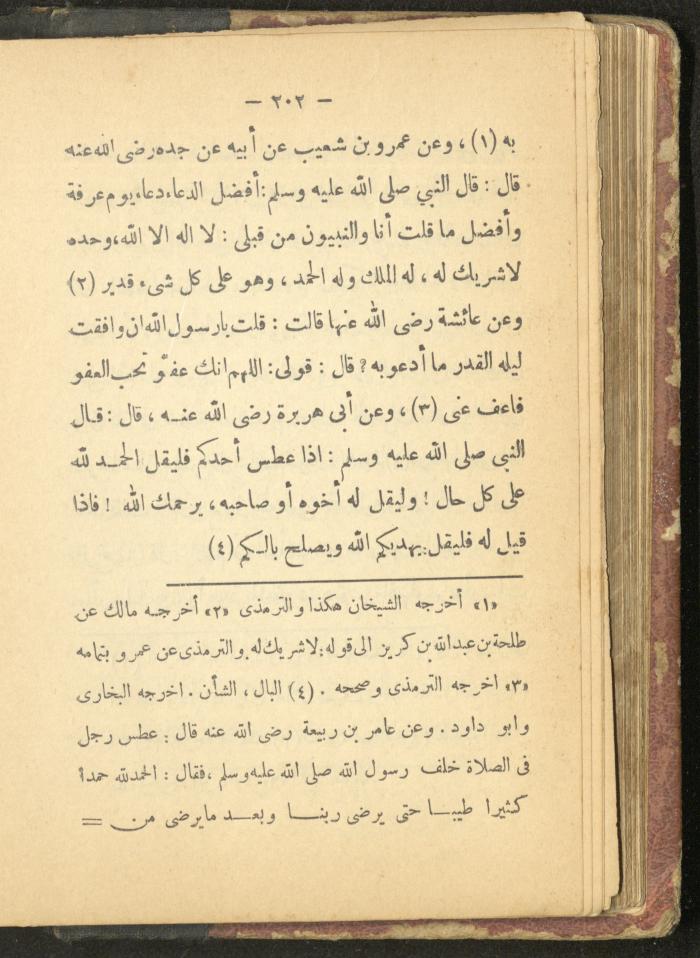 — ٢٠٢ —
به (١) ، وعن عمرو بن شعيب عن أبيه عن جده رضى الله عنه
قال : قال النبي صلى الله عليه وسلم : أفضل الدعاء دعاء يوم عرفة
وأفضل ما قلت أنا والنبيون من قبلى : لا اله الا الله ، وحده
لا شريك له ، له الملك وله الحمد ، وهو على كل شىء قدير (٢)
وعن عائشة رضى الله عنها قالت : قلت يارسول الله ان وافقت
ليله القدر ما أدعو به ؟ قال : قولى : اللهم انك عفوّ تحب العفو
فاعف عنى (٣) ، وعن أبى هريرة رضى الله عنه ، قال : قال
النبى صلى الله عليه وسلم : اذا عطس أحدكم فليقل الحمد لله
على كل حال ! وليقل له أخوه أو صاحبه ، يرحمك الله ! فاذا
قيل له فليقل : يهديكم الله ويصلح بالكم (٤)
«١» أخرجه الشيخان هكذا والترمذى «٢» أخرجه مالك عن
طلحة بن عبد الله بن كريز الى قوله : لا شريك له . والترمذى عن عمرو بتمامه
«٣» اخرجه الترمذى وصححه . (٤) البال ، الشأن . اخرجه البخارى
وابو داود . وعن عامر بن ربيعة رضى الله عنه قال : عطس رجل
فى الصلاة خلف رسول الله صلى الله عليه وسلم ، فقال : الحمد لله حمداً
كثيرا طيبا حتى يرضى ربنا وبعد مايرضى من =